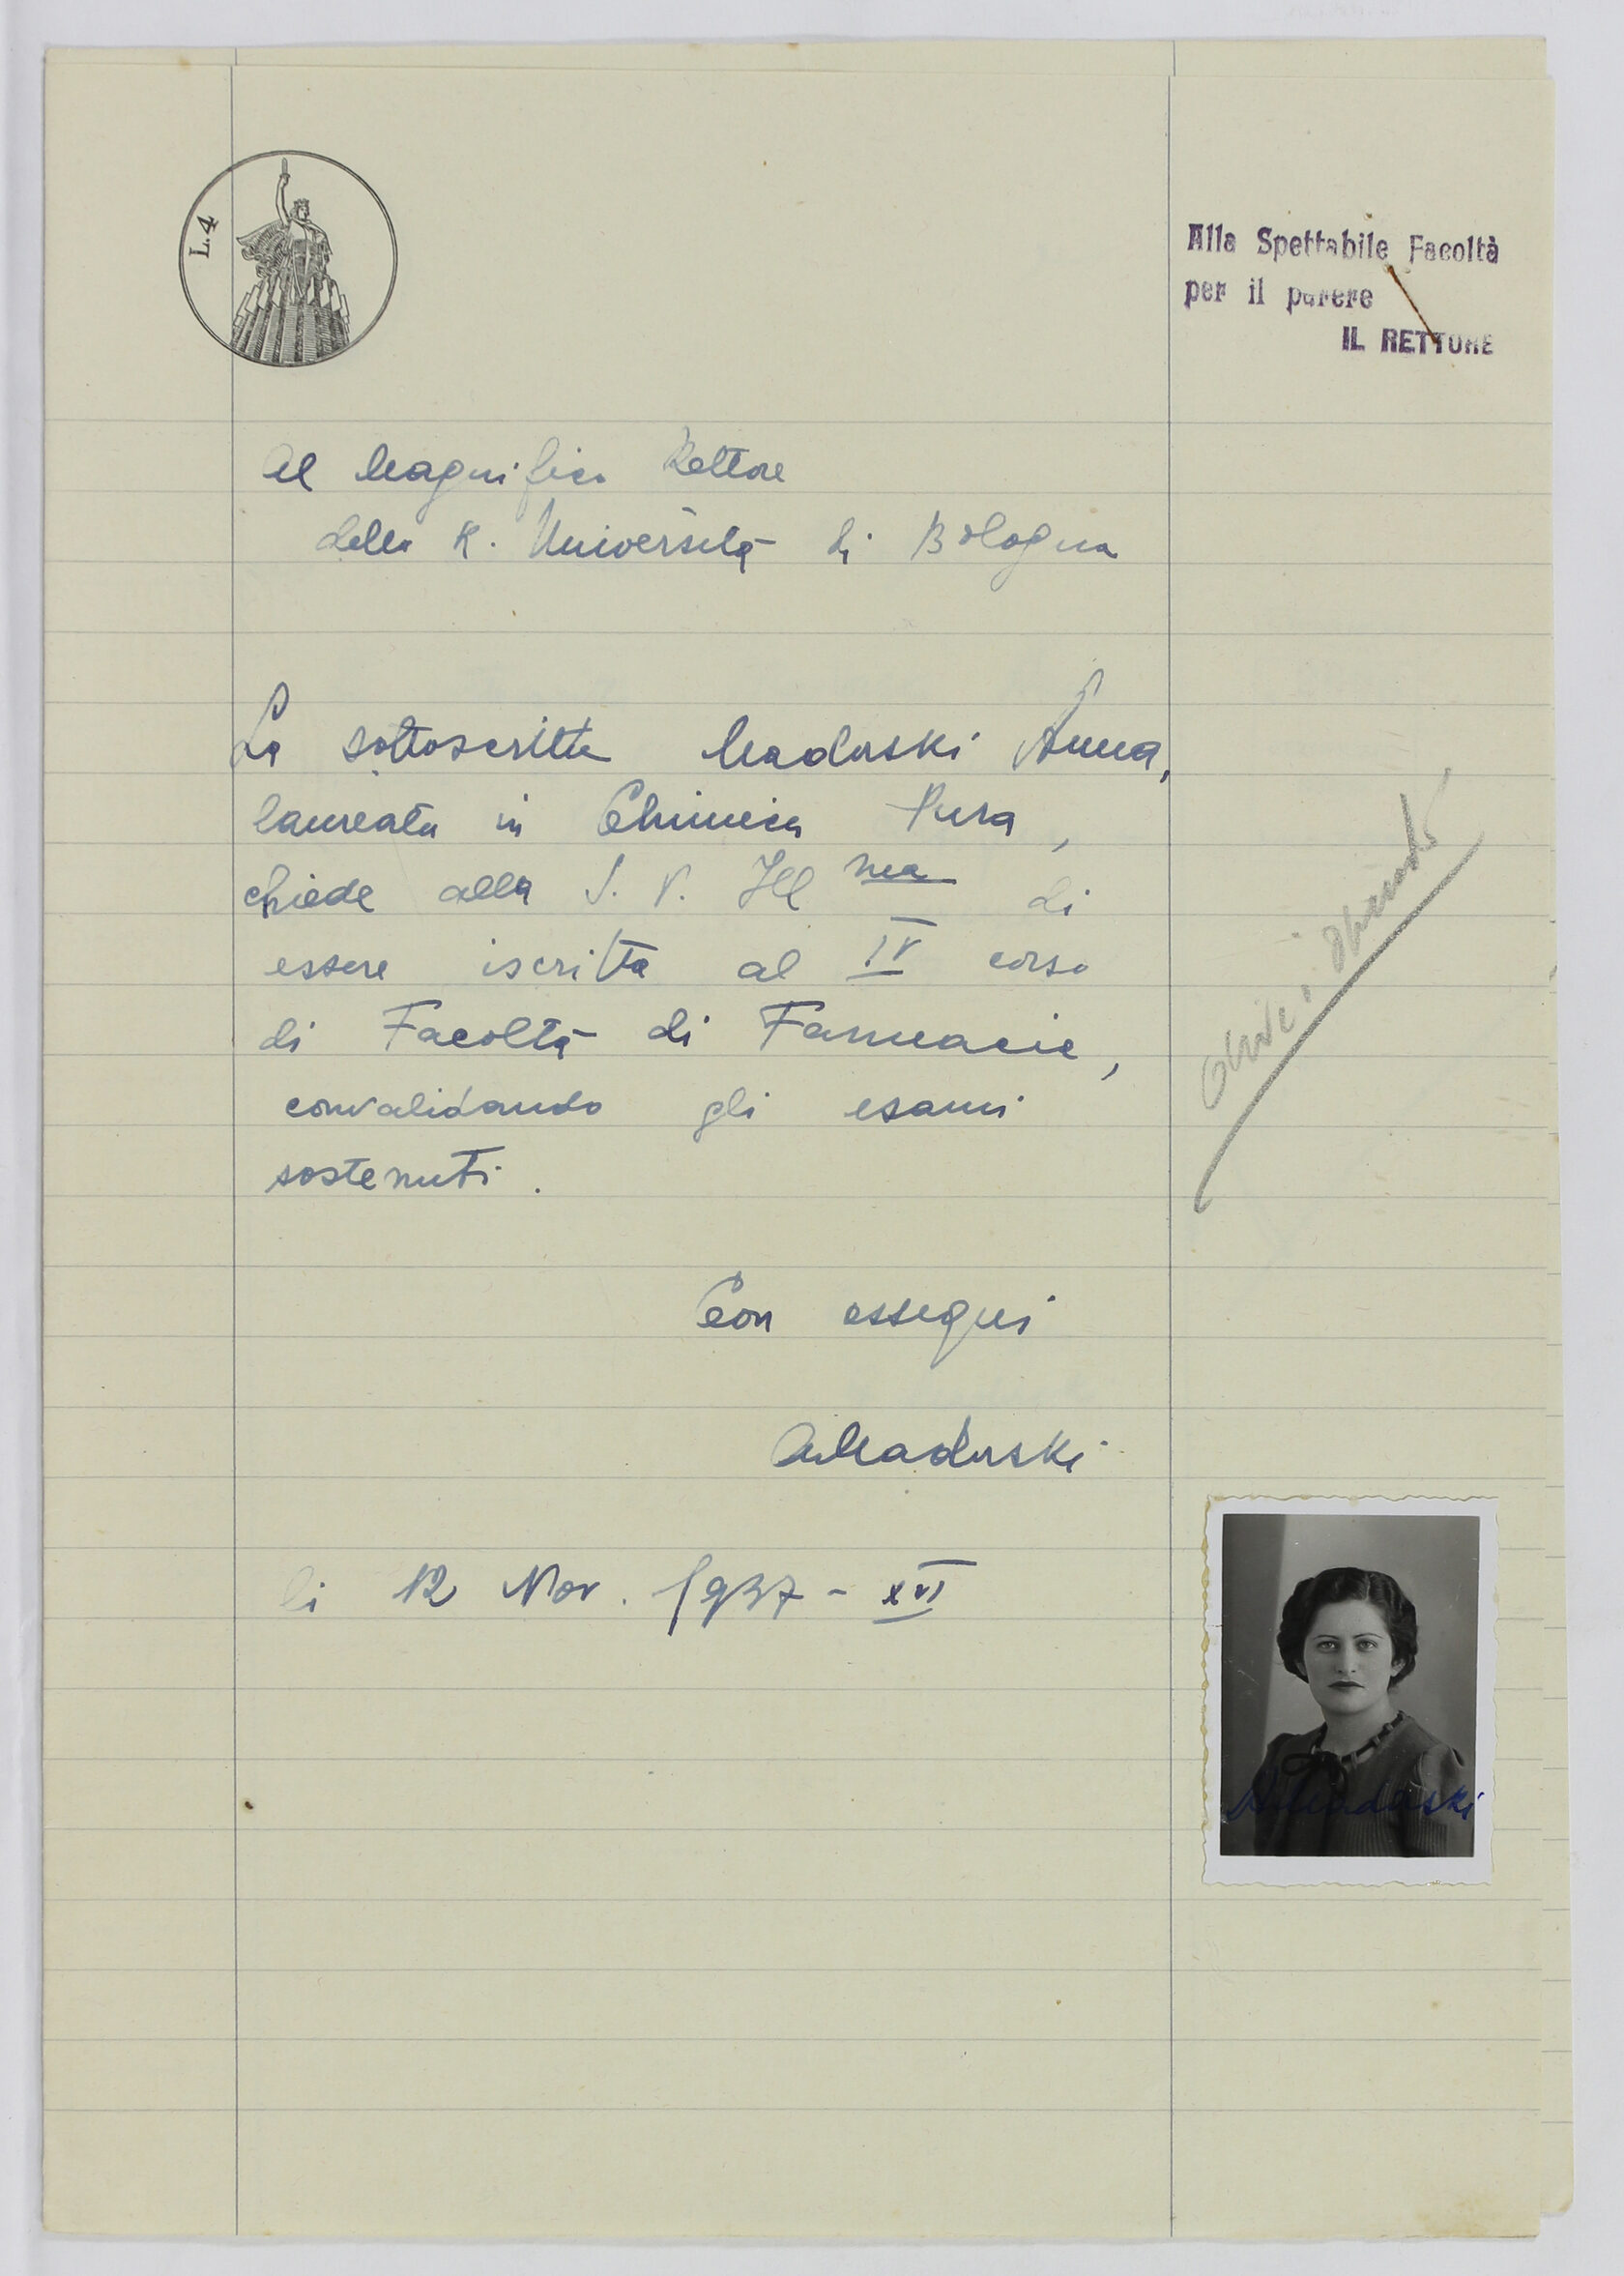 L. 4
Alla Spettabile Facoltà
per il parere
IL RETTORE
Al Magnifico Rettore
della R. Università di Bologna
La sottoscritta Maduski Anna,
laureata in Chimica Pura,
chiede alla S. V. Ill ma di
essere iscritta al IV corso
di Facoltà di Farmacia,
convalidando gli esami
sostenuti.
Con ossequi
AMaduski
li 12 Nov. 1937 - XVI
AMaduski